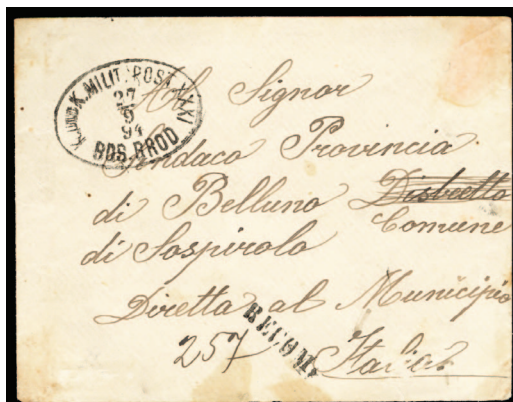 K. UND K. MILIT. POST XXI
27
9
94
BOS. BROD
Al Signor
Sindaco Provincia
di Belluno Distretto
di Sospirolo Comune
Diretta al Municipio
257 RECOM. Italia